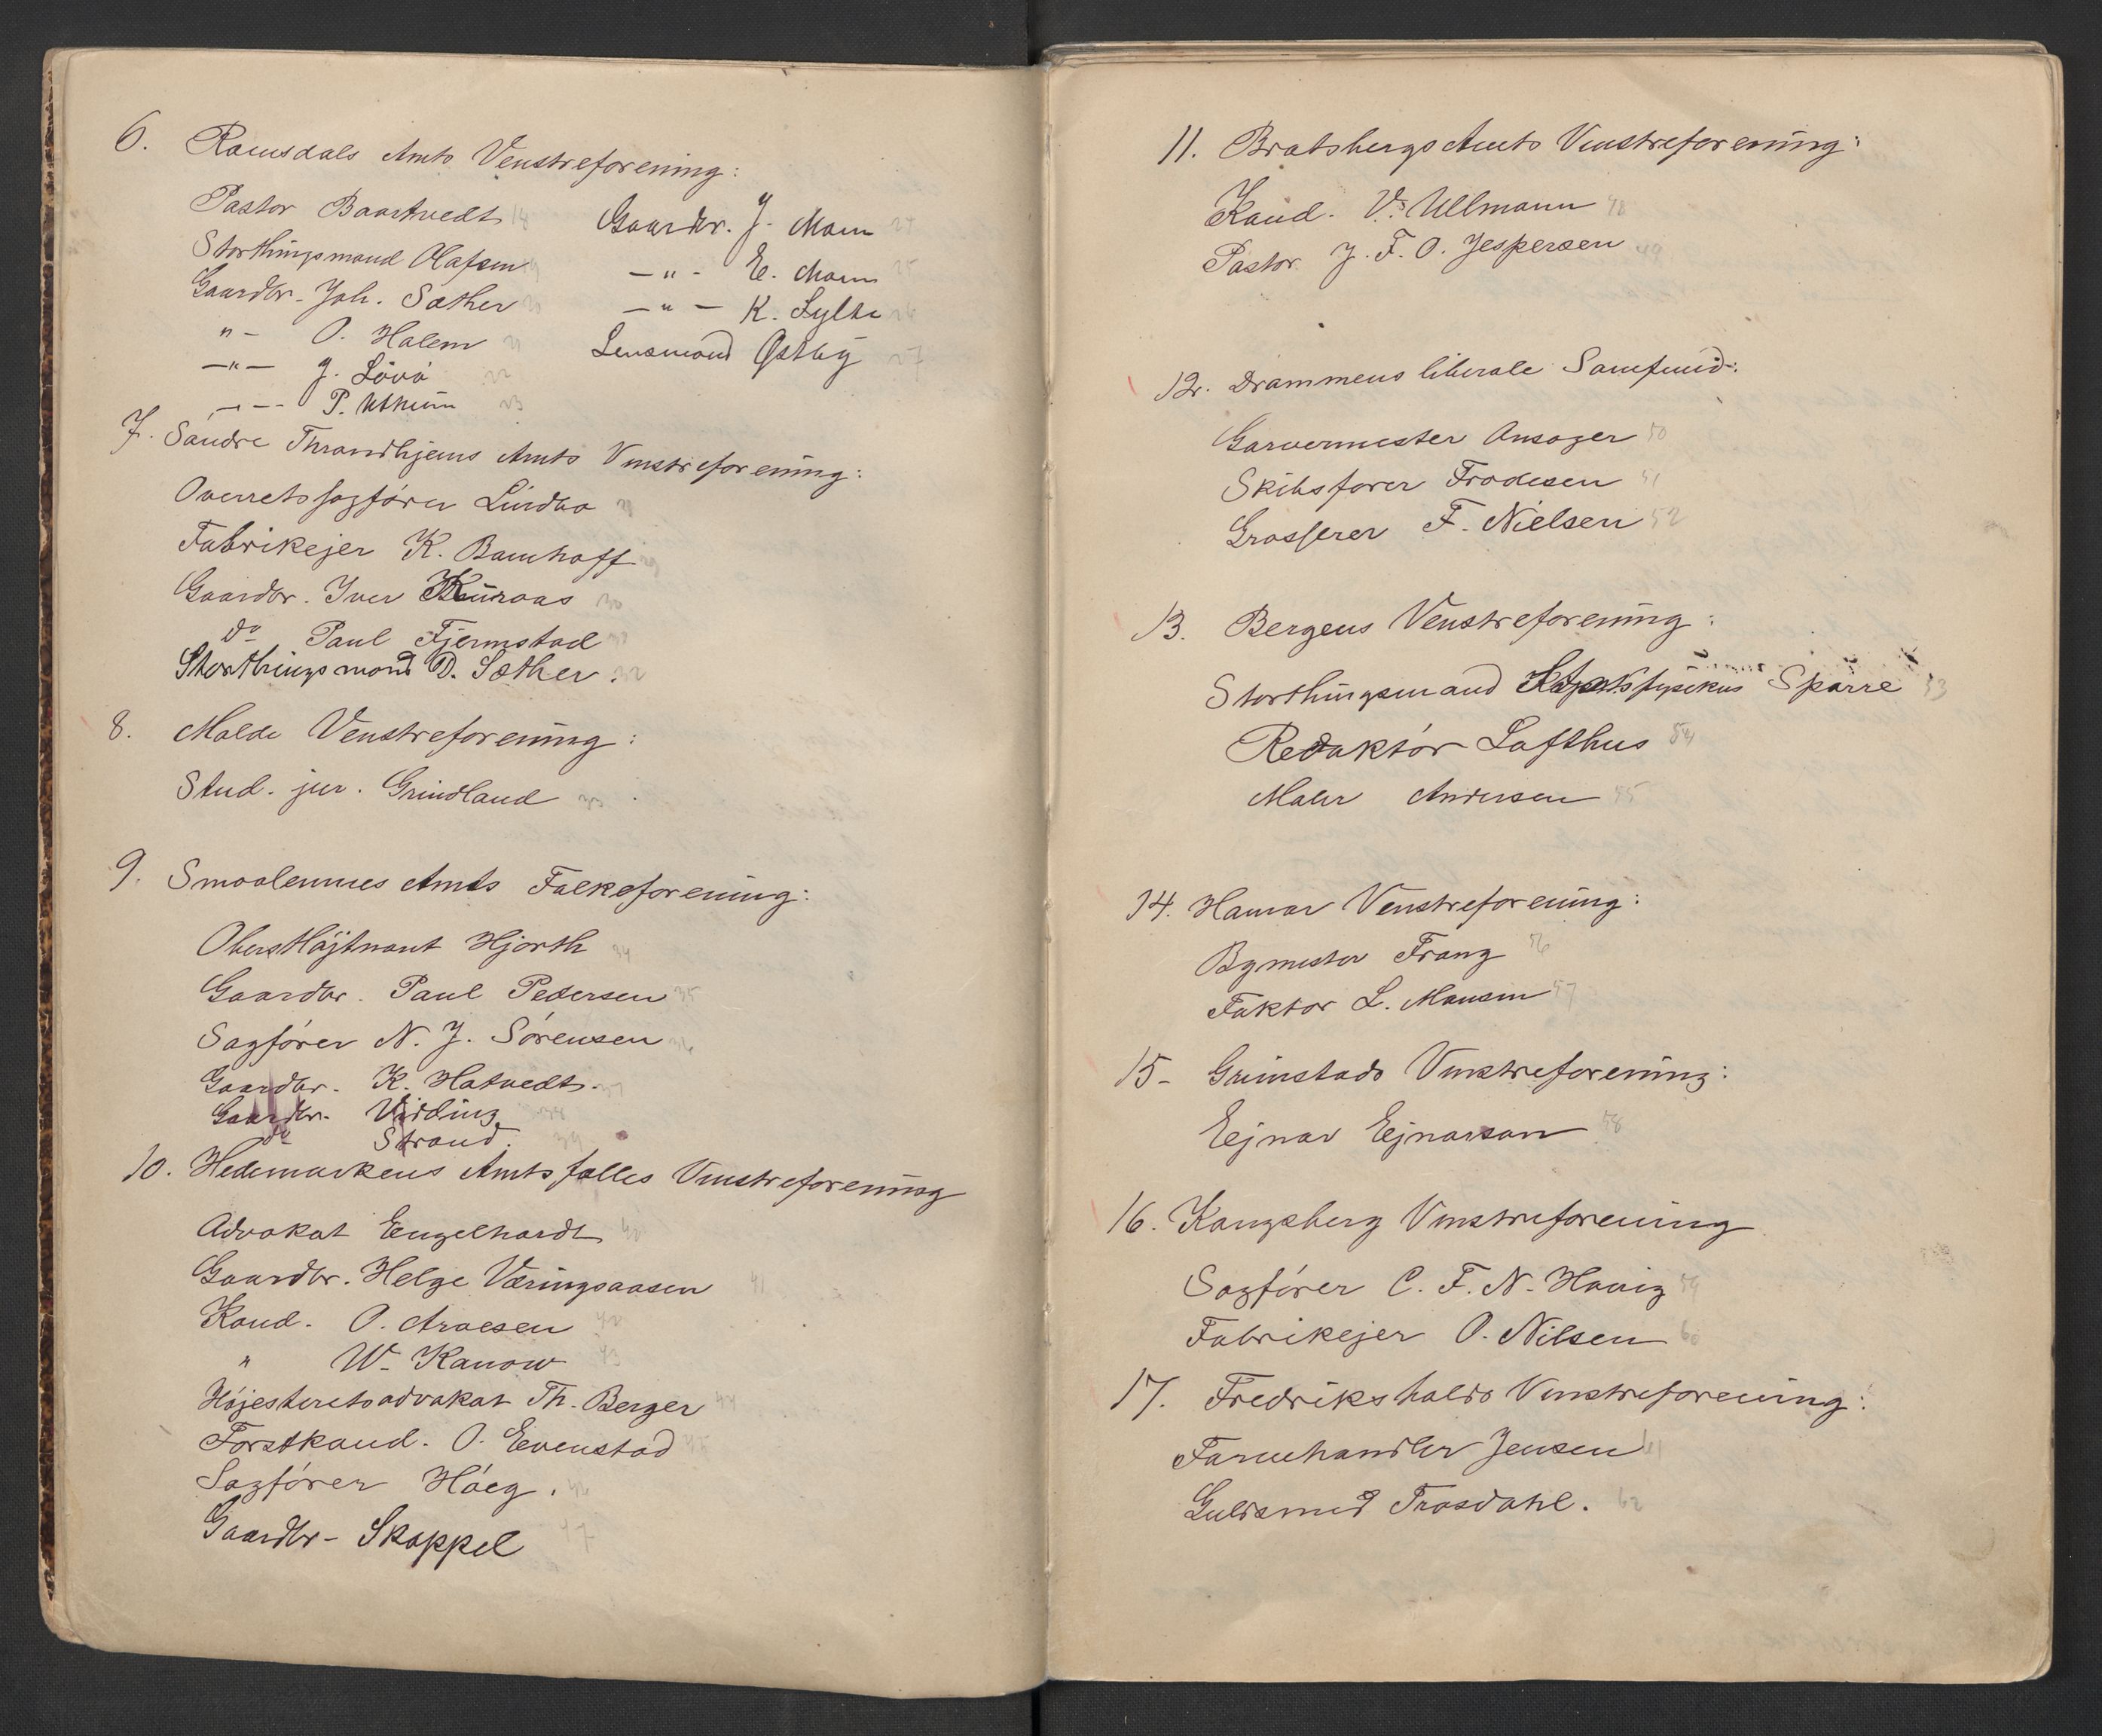 6. Romsdals Amts Venstreforening:
Pastor Baartvedt 18
Storthingsmand Olafsen 19
Gaardbr. Joh. Sæther 20
"- O. Halem 21
—"— J. Lövö 22
—"— P. Utheim 23
Gaardbr. J. Moen 24
—"- E. Moen 25
—"— K. Sylte 26
Lensmand Østby 27
7. Söndre Throndhjems Amts Venstreforening:
Overretssagförer Lindbo 28
Fabrikejer K. Bamhoff 29
Gaardbr. Iver Kuraas 30
do Paul Fjermstad 31
Storthingsmand D. Sæther. 32
8. Molde Venstreforening:
Stud. jur. Grindland 33
9. Smaalenenes Amts Folkeforening:
Oberstlöjtnant Hjorth 34
Gaardbr. Paul Pedersen 35
Sagförer N. J. Sörensen 36
Gaardbr. K. Hatvedt. 37
Gaardbr. Vidding 38
do Strand. 39
10. Hedemarkens Amts fælles Venstreforening
Advokat Engelhardt 40
Gaardbr. Helge Væringsaasen 41
Kand. O. Arnesen 42
" W. Kanow 43
Höjesteretsadvokat Th. Berger 44
Forstkand. O. Evenstad 45
Sagförer Höeg. 46
Gaardbr- Skappel 47
11. Bratsbergs Amts Venstreforening:
Kand. V. Ullmann 48
Pastor J. F. O. Jespersen 49
12. Drammens liberale Samfund:
Garvermester Ansager 50
Skibsförer Frodesen 51
Grosserer F. Nielsen 52
13. Bergens Venstreforening:
Storthingsmand Stadsfysikus Sparre 53
Redaktör Lofthus 54
Maler Andersen 55
14. Hamar Venstreforening:
Bygmester Frang 56
Faktor L. Monsen 57
15- Grimstads Venstreforening:
Ejnar Ejnarson 58
16. Kongsberg Venstreforening
Sagförer C. F. N. Havig 59
Fabrikejer O. Nilsen 60
17. Fredrikshalds Venstreforening:
Farvehandler Jensen 61
Guldsmed Trosdahl. 62